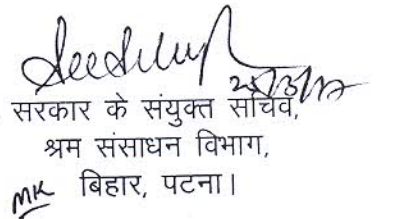 सरकार के संयुक्त सचिव,
श्रम संसाधन विभाग,
बिहार, पटना।
MK